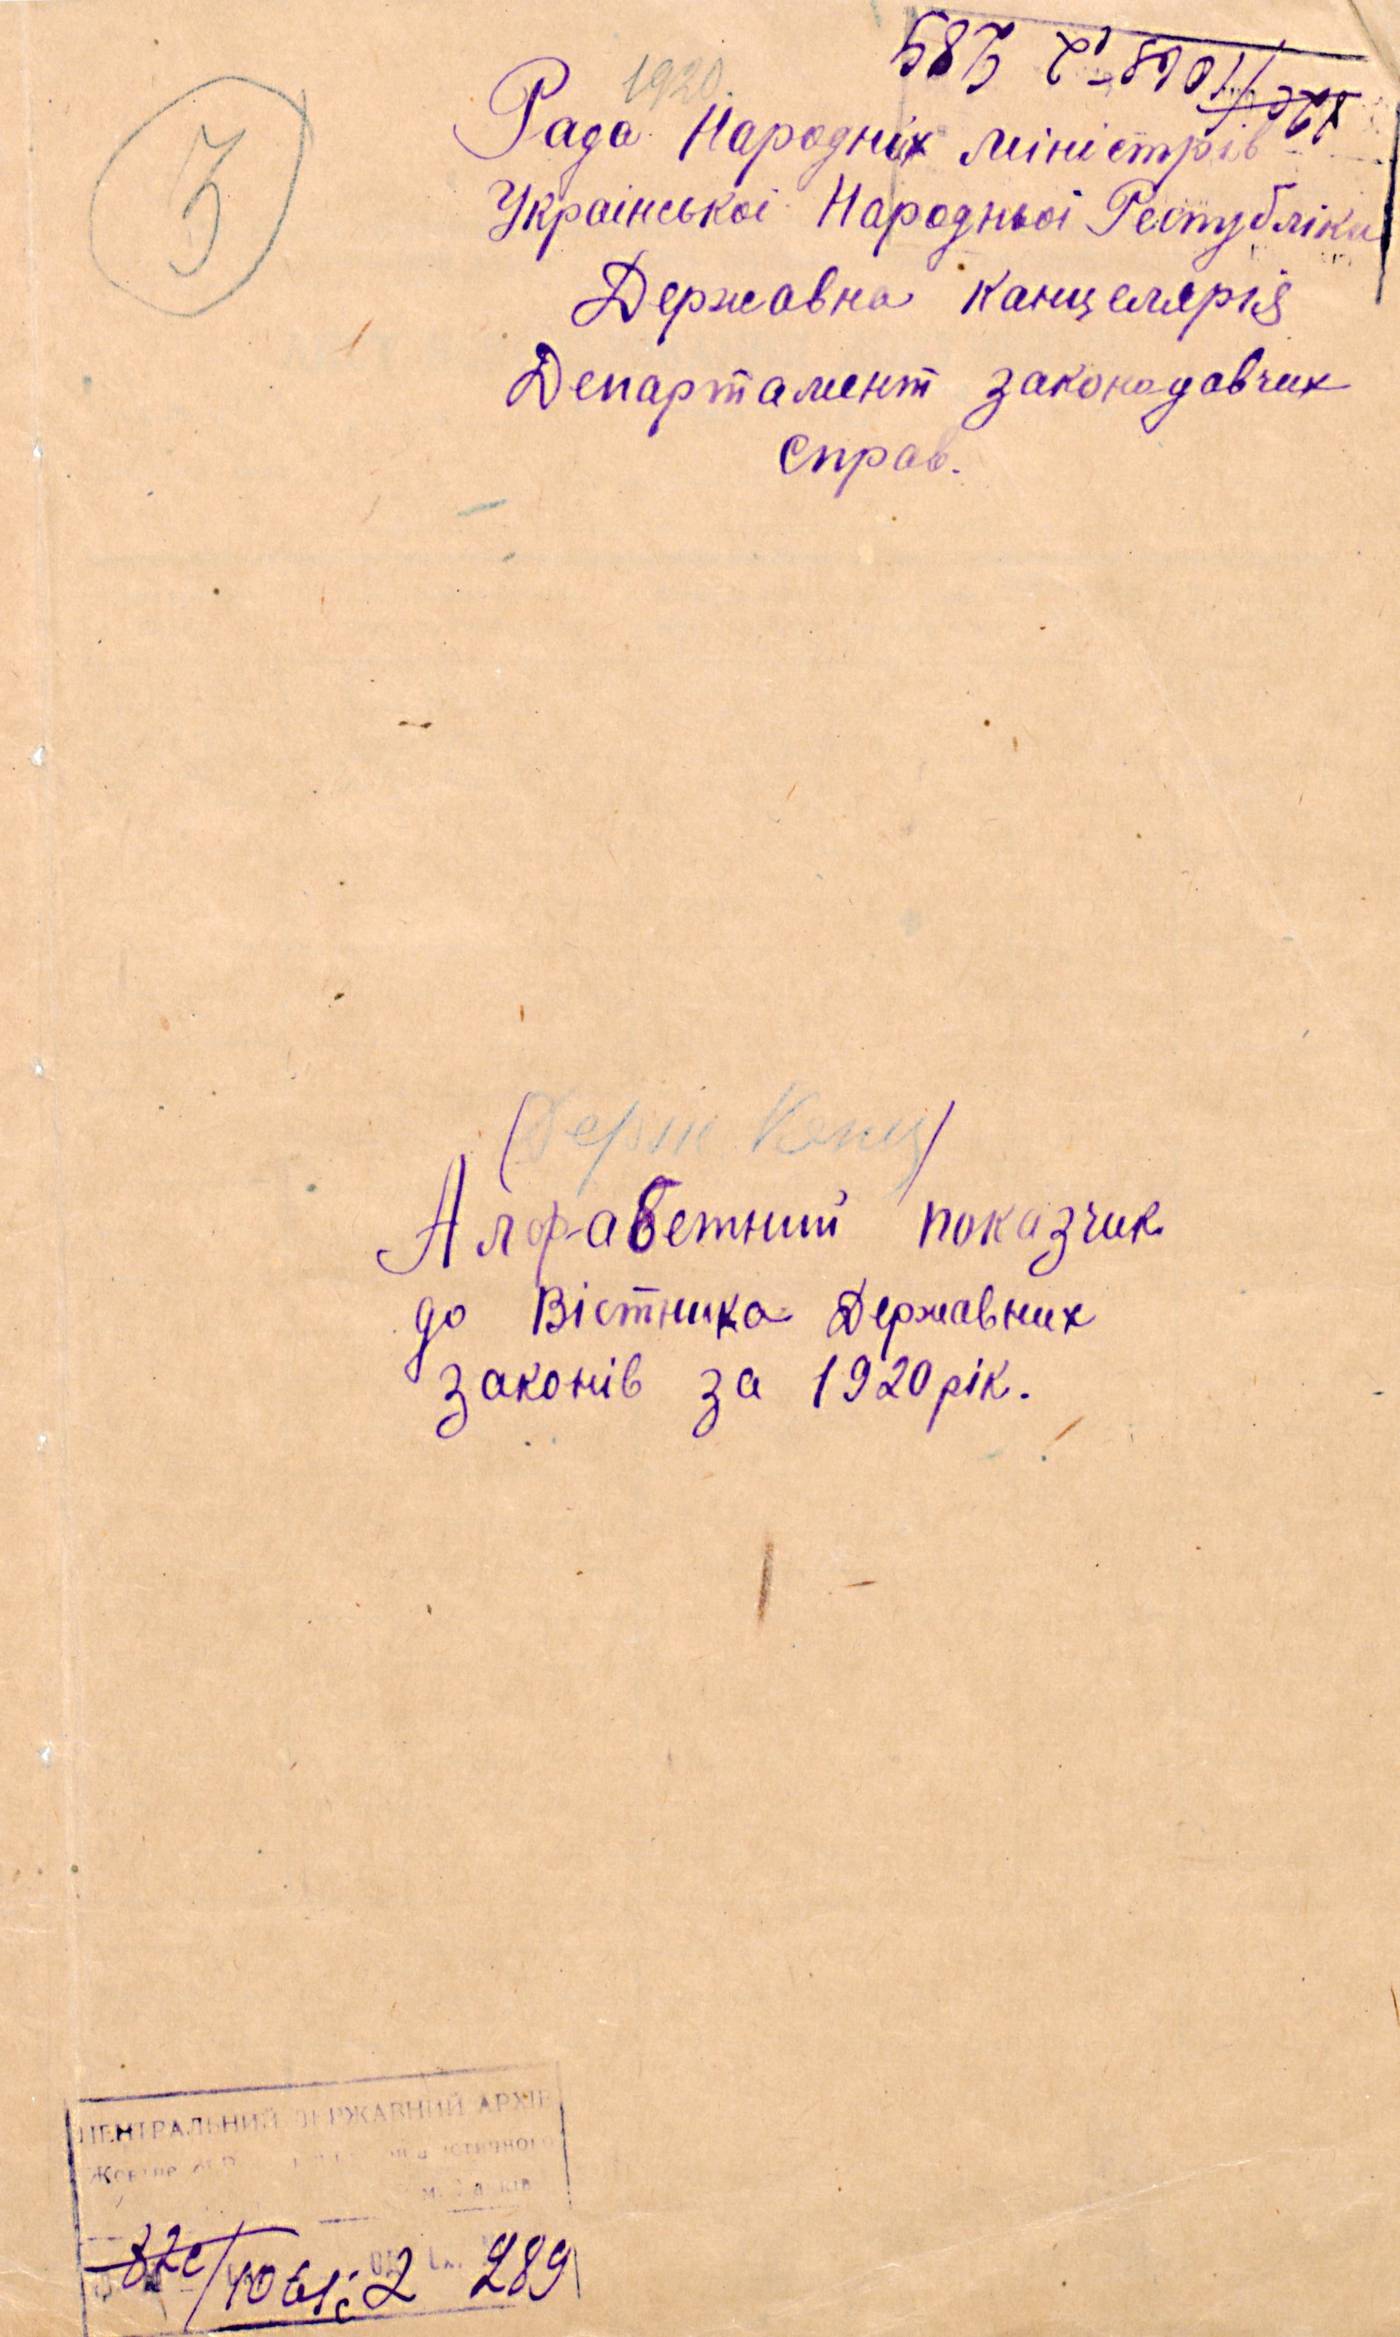 3
1920.
Рада Народніх Міністрів
Української Народньої Республіки
Державна Канцелярія
Департамент законодавчих
справ.
(Держ Канц)
Алфабетний показчик
до Вістника Державних
законів за 1920 рік.
ЦЕНТРАЛЬНИЙ ДЕРЖАВНИЙ АРХІВ
2 289